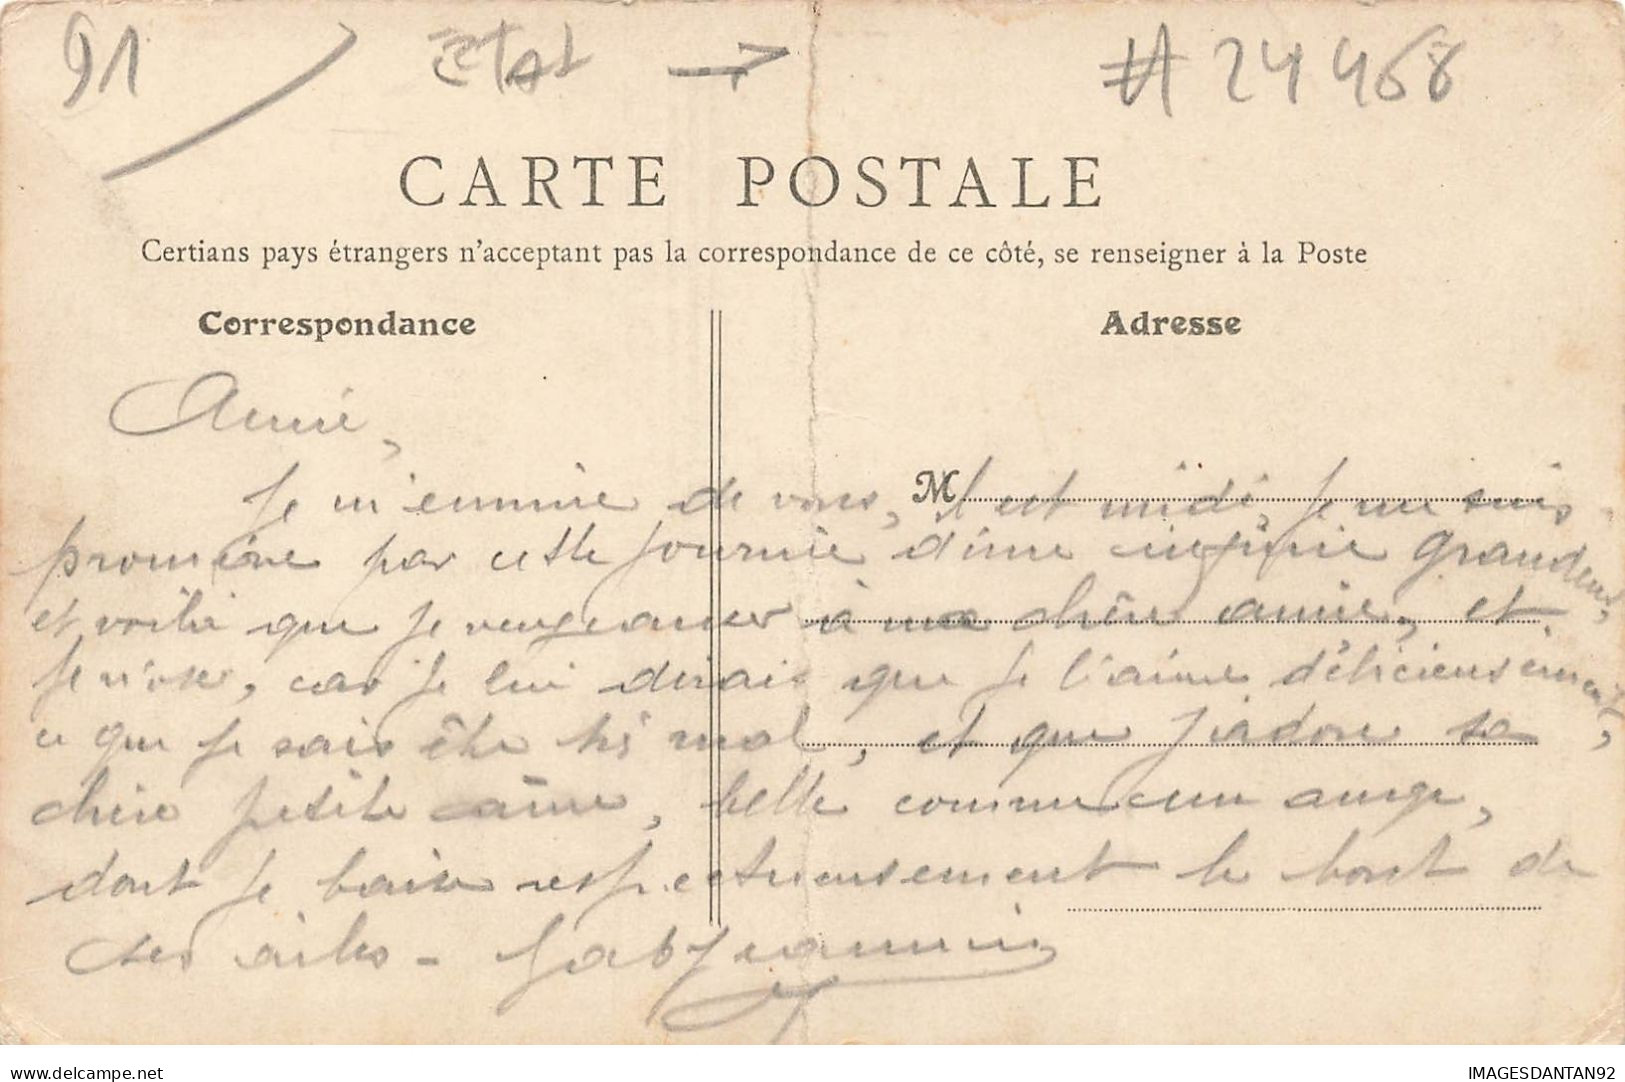 91 ETAT → # 24468
CARTE POSTALE
Certians pays étrangers n'acceptant pas la correspondance de ce côté, se renseigner à la Poste
Correspondance Adresse
Amie,
Je m'ennuie de vous, M il est midi, je me suis
promène par cette journée d'une infinie grandeur,
et voilà que je à ma chère amie, et
je n'ose, car je lui dirais que je l'aime délicieusement,
ce que je sais être très mal, et que j'adore sa
chère petite âme, belle comme un ange,
dont je baise respectueusement le bout de
ses ailes - Gab
IMAGESDANTAN92
delcampe.net